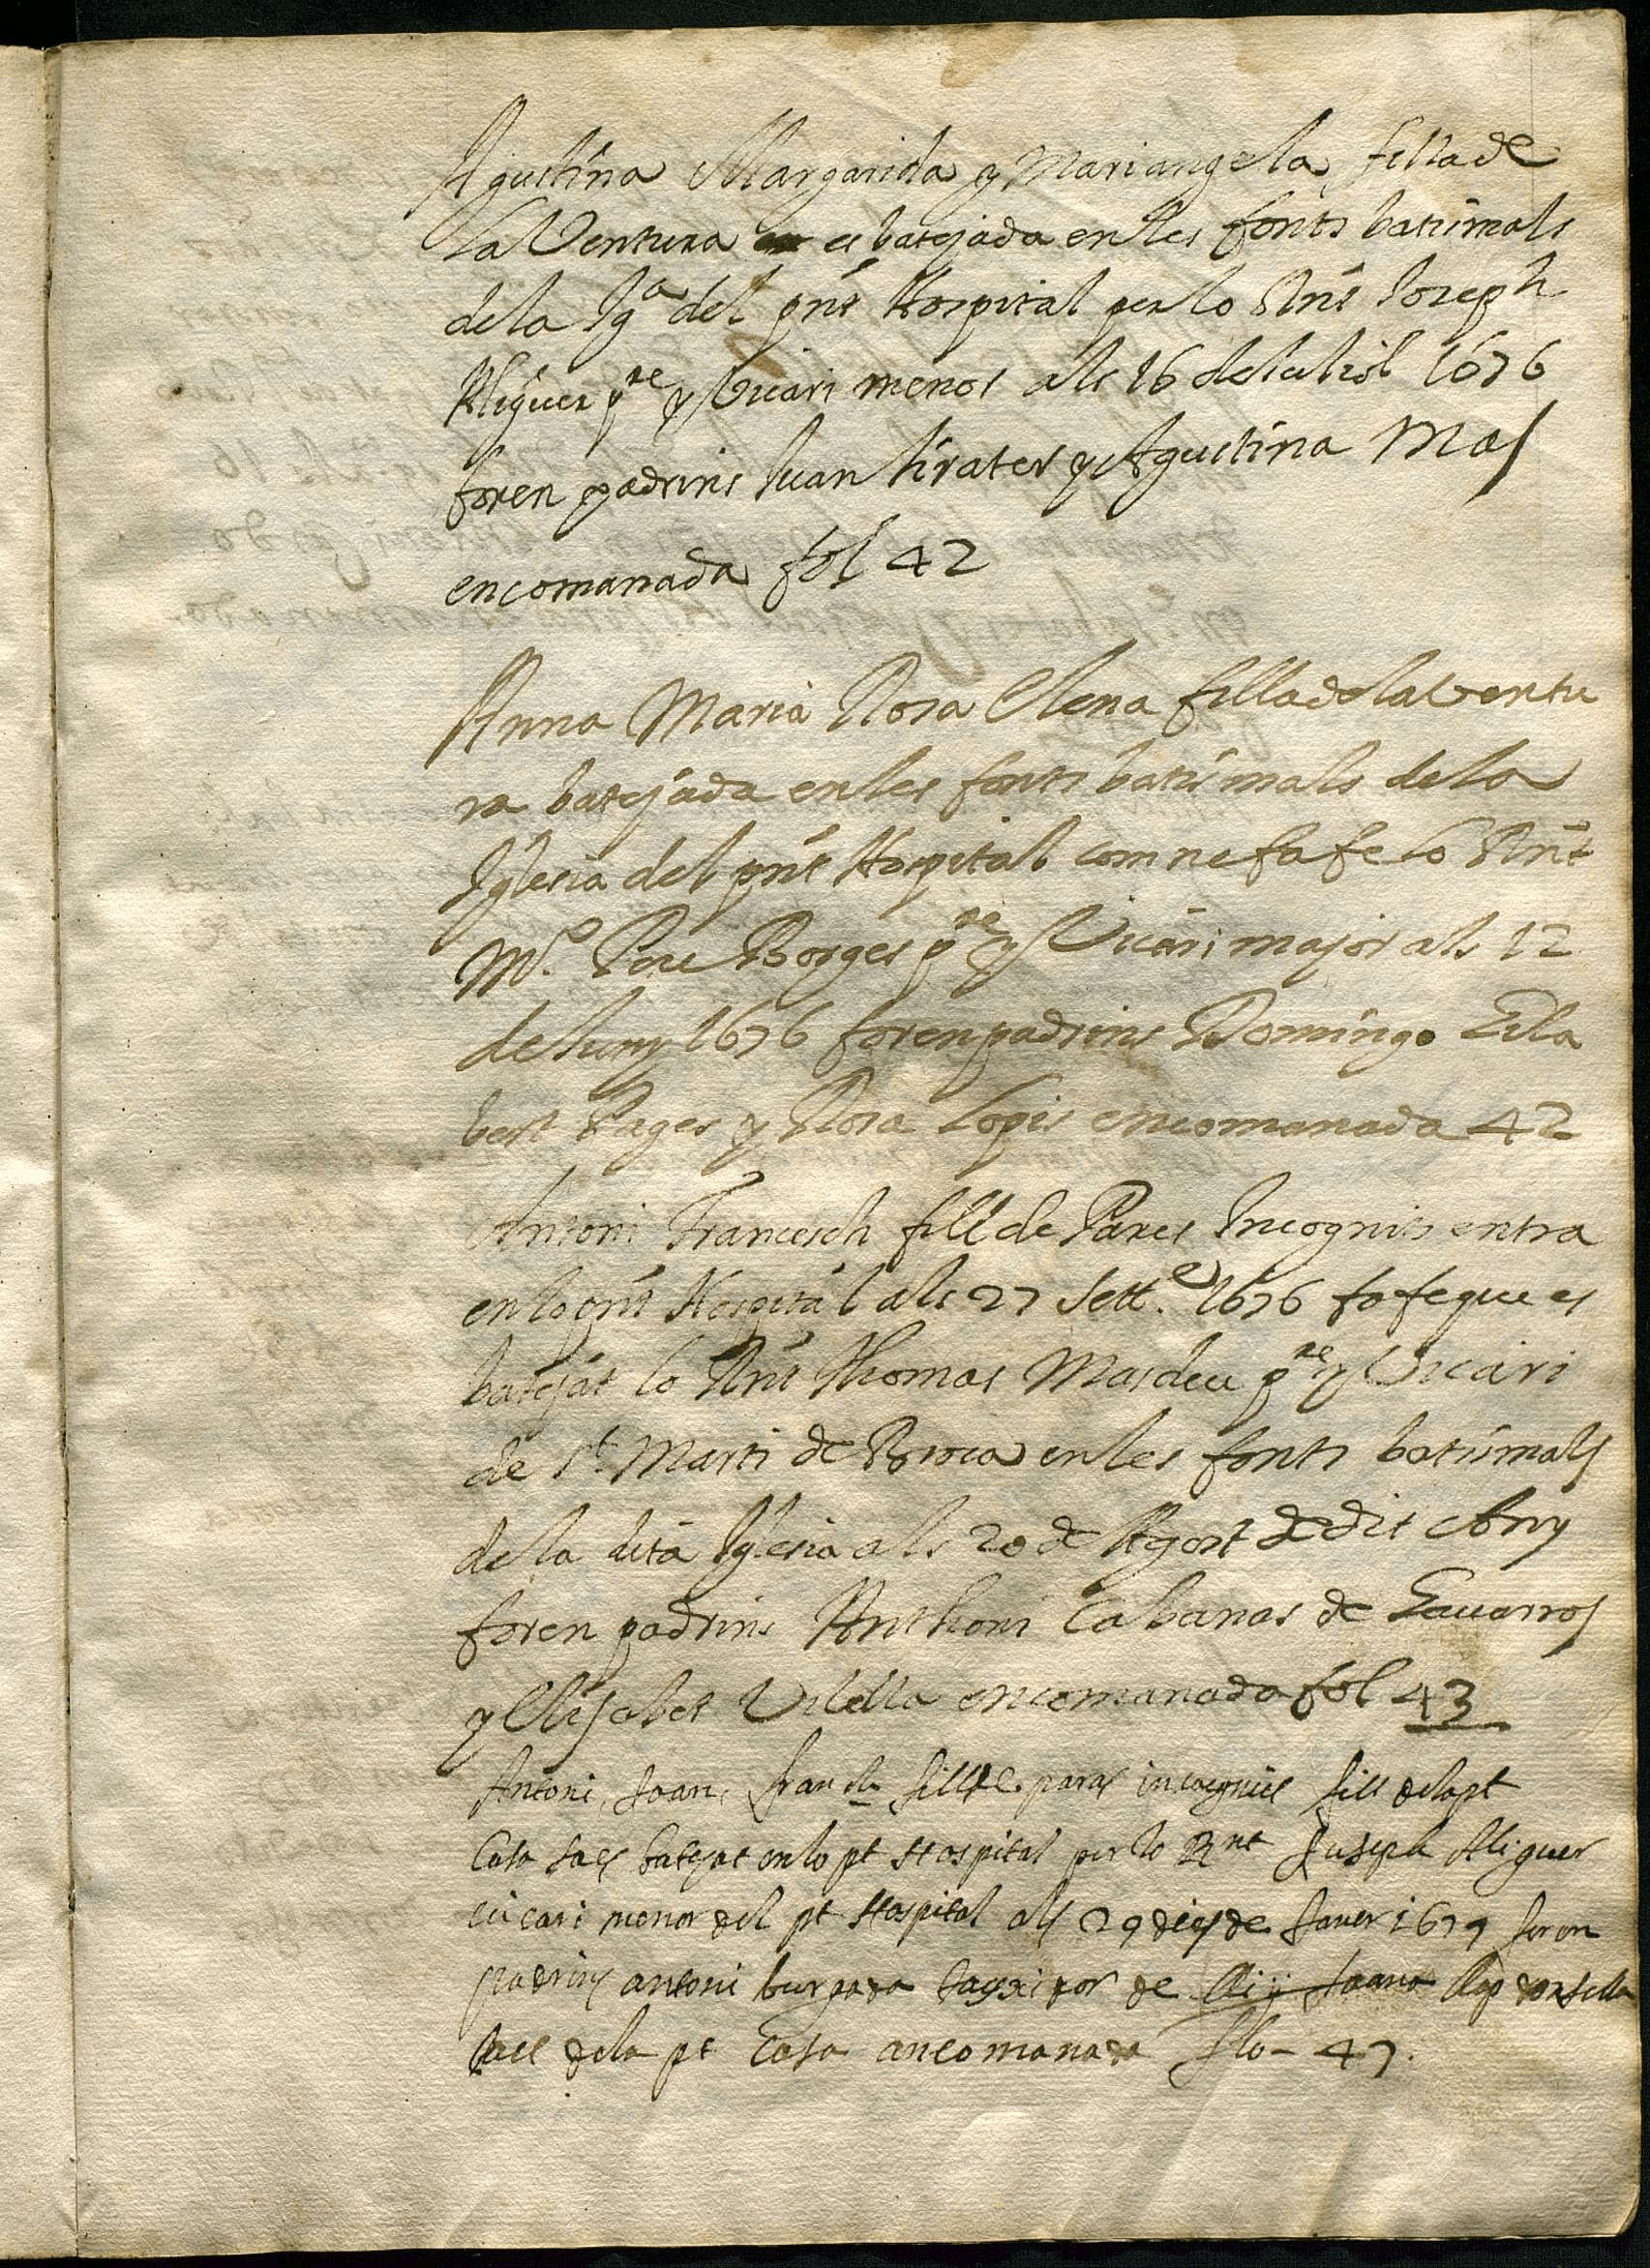 Agustina Margarida y Mariangela, filla de
la Ventura es batejada en les fonts batismals
de la Igª del pnt Hospital per lo Rnt Joseph
Aliguer pre y Vicari menor als 16 de Juliol 1676
foren padrins Juan tirater y Agustina Mas
encomanada fol 42
Anna Maria Rosa Elena filla de la Ventu
ra batejada en les fonts batismals de la
Iglesia del pnt Hospital com ne fa fe lo Rnt
Mº. Pere Borges pre y Vicari major als 12
de Juny 1676 foren padrins Domingo Gila
bert Pages y Rosa Lopis encomanada 42
Antoni Francesch fill de Pares Incognits entra
en lo pnt Hospital als 27 Sett.e 1676 fa fe que es
batejat lo Rnt Thomas Masdeu pre y Vicari
de St. Marti de Broca en les fonts batismals
de la dita Iglesia als 20 de Agost de dit Any
foren padrins Anthoni Cabanas de Gavarros
y Elisabet Vilella encomanada fol 43
Antoni, Joan, fill de paras incognits fill de la pt
Casa fas batejat en lo pt Hospital per lo Rnt Juseph Aliguer
vicari menor del pt Hospital als 29 dias de Janer 1679 foren
padrins antoni burgada de
de la pt Casa ancomanada flo - 47.